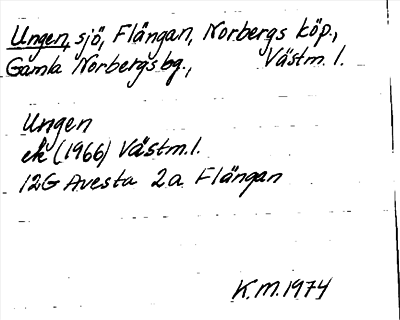 Ungen, sjö, Flängan, Norbergs köp.,
Gamla Norbergs bg., Västm. l.
Ungen
ek (1966) Västm.l.
12G Avesta 2a Flängan
K.M.1974